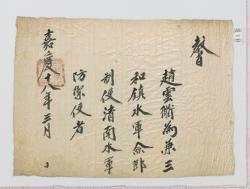 敎旨
趙雲 爲兼三
和鎭水軍僉節
制使淸南水軍
防禦使者
嘉慶十八年三月 日